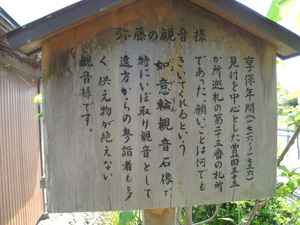 弥藤の観音様
京・保年間(一七一六〜一七三六)
見付を中心とした豊田三十三
か所巡礼の第二十三番の札所
であった。願いごとは何でも
きいてくれるという
如意輪観音石像で
特にいぼ取り観音として
遠方からの参詣者も多
く、供え物が絶えない
観音様です。